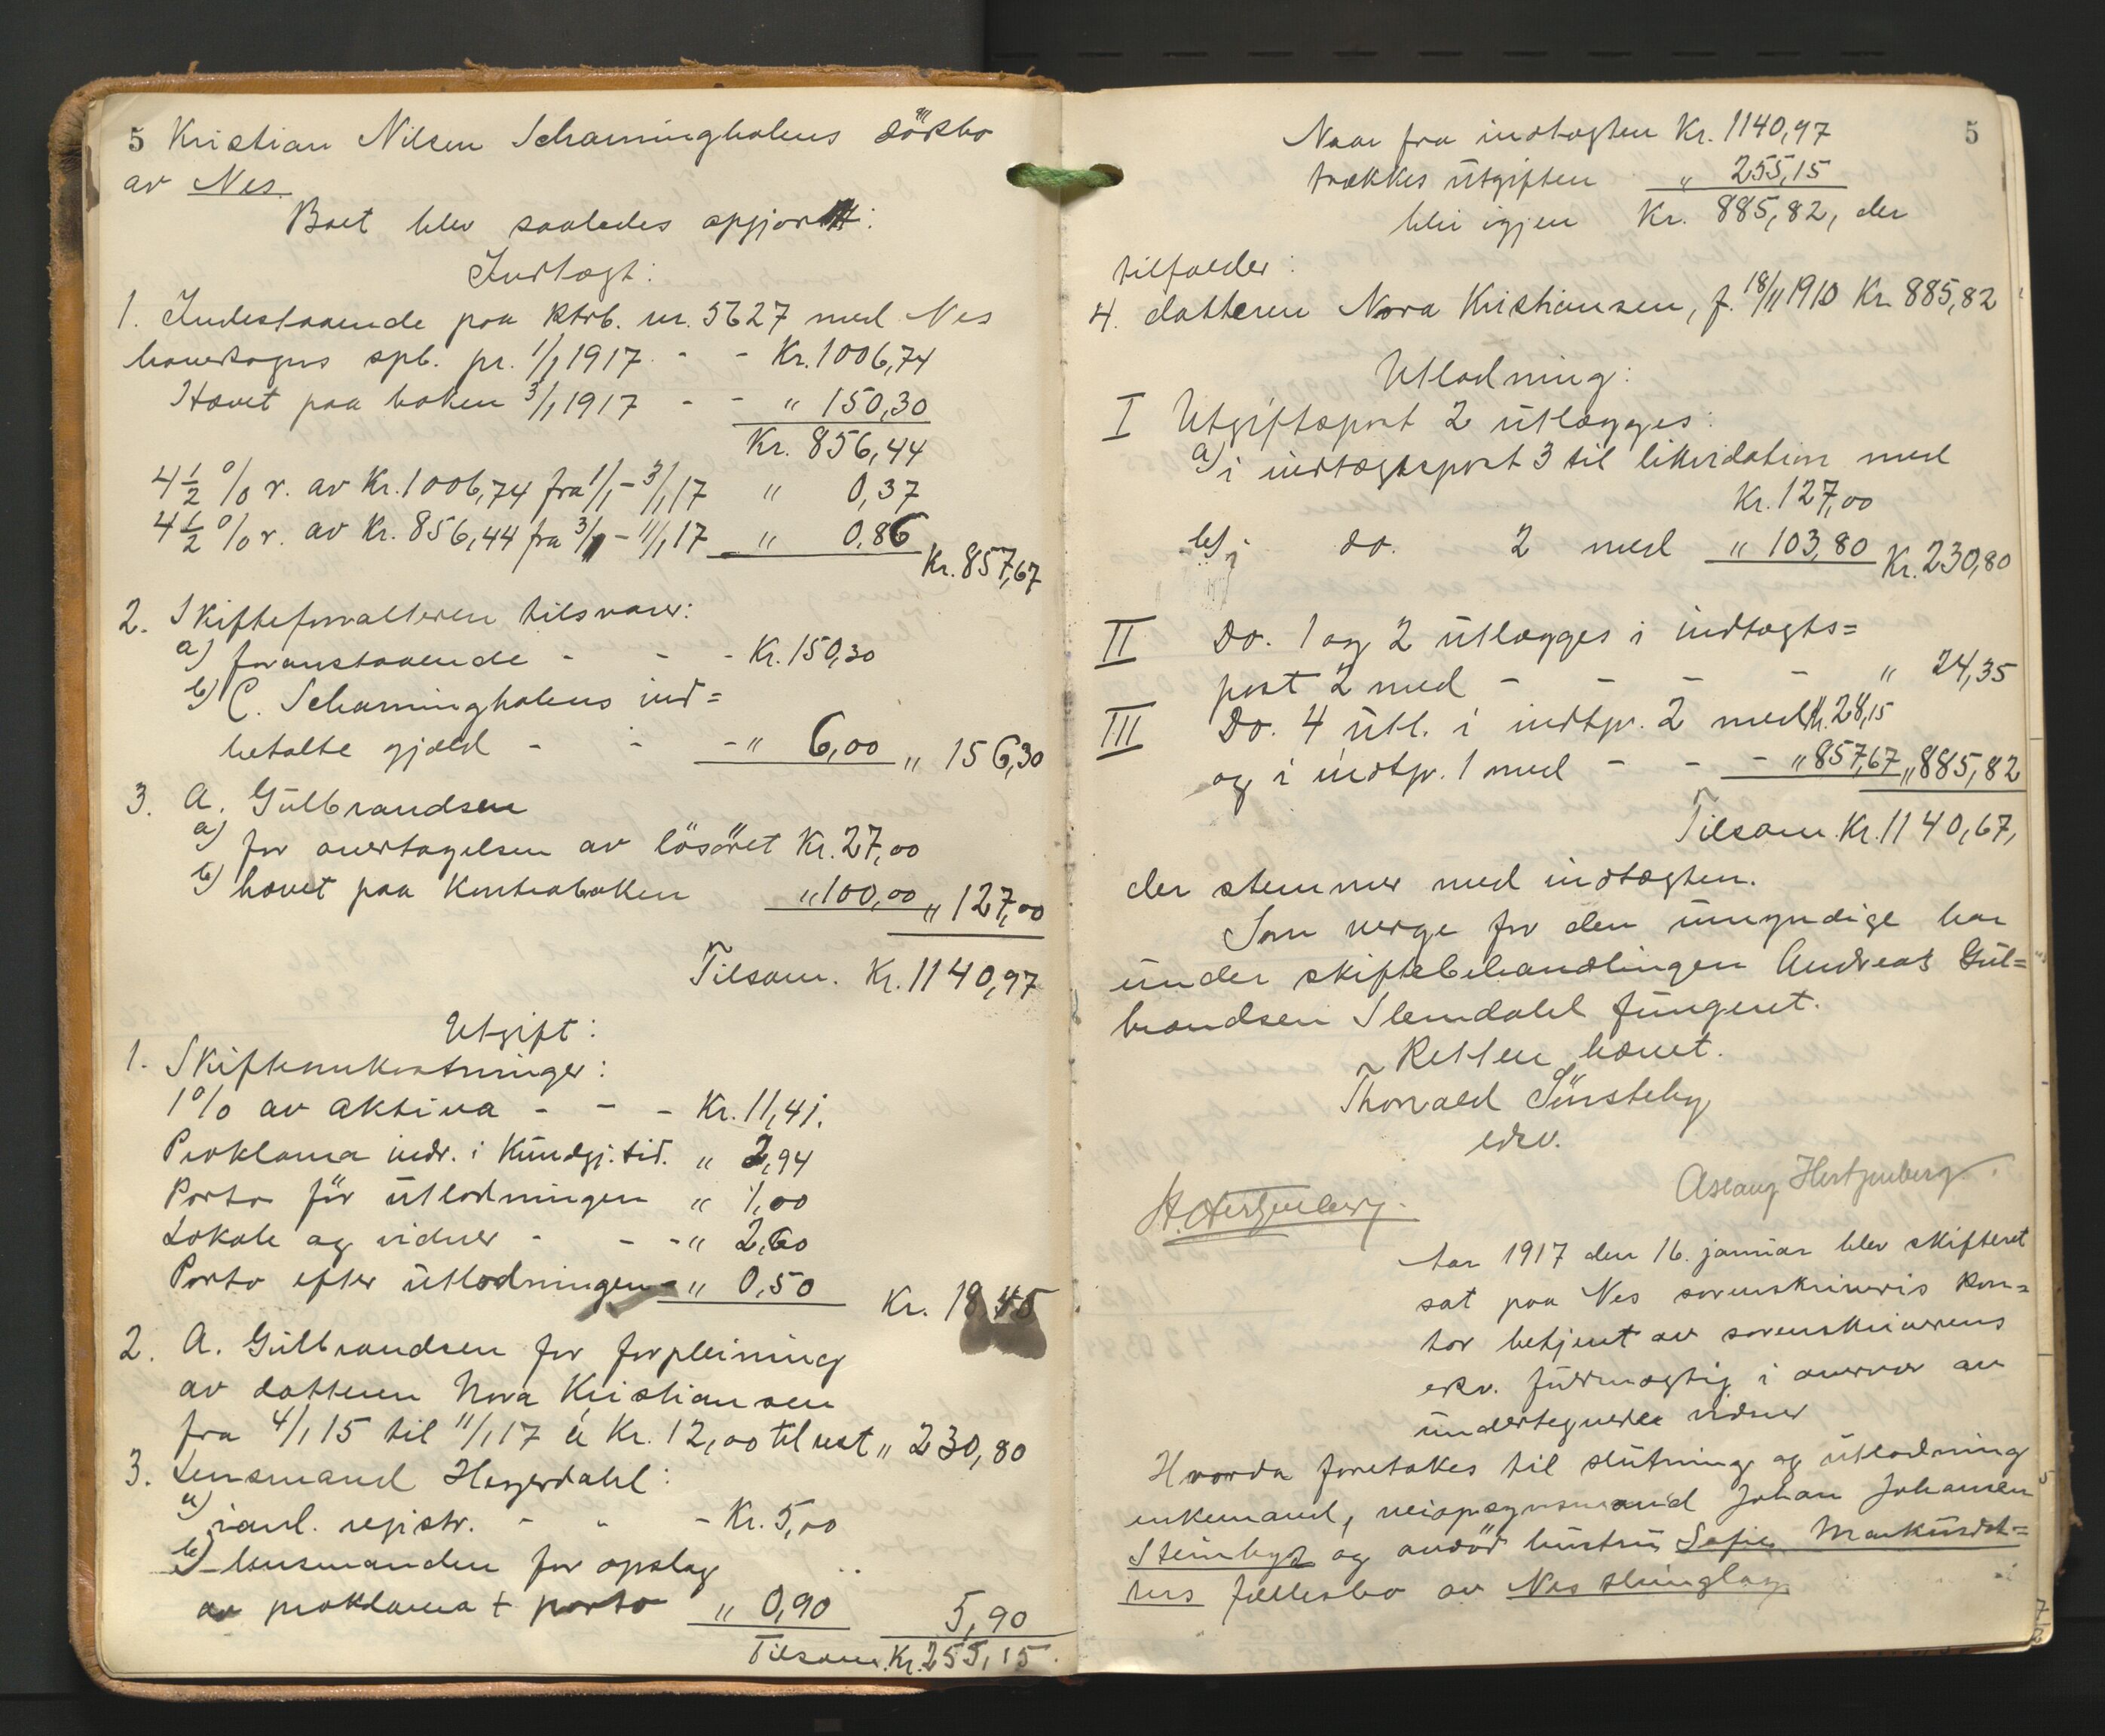 5 Kristian Nilsen Scharninghølens dødsbo
av Nes.
Boet blev saaledes opgjort:
Indtægt:
1. Indestaaende paa ktrb. nr. 5627 med Nes
hovedsogns spb. pr. 1/1 1917 - - Kr. 1006,74
Hævet paa boken 3/1 1917 - - " 150,30
Kr. 856,44
4 1/2 % r. av Kr. 1006,74 fra 1/1 - 3/1 17 " 0,37
4 1/2 % r. av Kr. 856,44 fra 3/1 - 11/1 17 " 0,86
Kr. 857,67
2. Skifteforvalteren tilsvarer:
a) foranstaaende - - - Kr. 150,30
b) C. Scharninghølens ind=
betalte gjæld - - - " 6,00 " 156,30
3. A. Gulbrandsen
a) for overtagelsen av løsøret Kr. 27,00
b) hævet paa Kontraboken " 100,00 " 127,00
Tilsam. Kr. 1140,97
Utgift:
1. Skifteomkostninger:
1% av aktiva - - - Kr. 11,41.
Proklama indr. i Kundgj. tid. " 2,94
Porto før utlodningen " 1,00
Lokale og vidner - - - " 2,60
Porto efter utlodningen - " 0,50 Kr. 18,45
2. A. Gulbrandsen for forpleining
av datteren Nora Kristiansen
fra 4/1 15 til 11/1 17 à Kr. 12,00 til rest " 230,80
3. Lensmand Heyerdahl:
a) ianl. registr. - - - Kr. 5,00
b) lensmanden for opslag
av proklama + porto " 0,90 5,90
Tilsam. Kr. 255,15.
5
Naar fra indtægten Kr. 1140,97
trækkes utgiften " 255,15
blir igjen Kr. 885,82, der
tilfalder:
4. datteren Nora Kristiansen, f. 18/11 1910 Kr 885,82
Utlodning:
I Utgiftspost 2 utlægges:
a) i indtægtspost 3 til likvidation med
Kr. 127,00
b) i do. 2 med " 103,80 Kr. 230,80
II Do. 1 og 2 utlægges i indtægts=
post 2 med - - - - " 24,35
III Do. 4 utl. i indtp. 2 med Kr. 28,15
og i indtp. 1 med - - - " 857,67 " 885,82
Tilsam. Kr. 1140,67,
der stemmer med indtægten.
Som verge for den umyndige har
under skiftebehandlingen Andreas Gul=
brandsen Slemdahl fungeret.
Retten hævet.
Thorvald Sønsteby
edsv.
H. Hertzenberg. Aslaug Hertzenberg.
Aar 1917 den 16. januar blev skifteret
sat paa Nes sorenskriveris kon=
tor betjent av sorenskriverens
edsv. fuldmægtig i overvær av
undertegnede vidner
Hvorda foretokes til slutning og utlodning
enkemand, veiopsynsmand Johan Johansen
Steinbys og avdød hustru Sofie Markusdat=
ters fællesbo av Nes thinglag